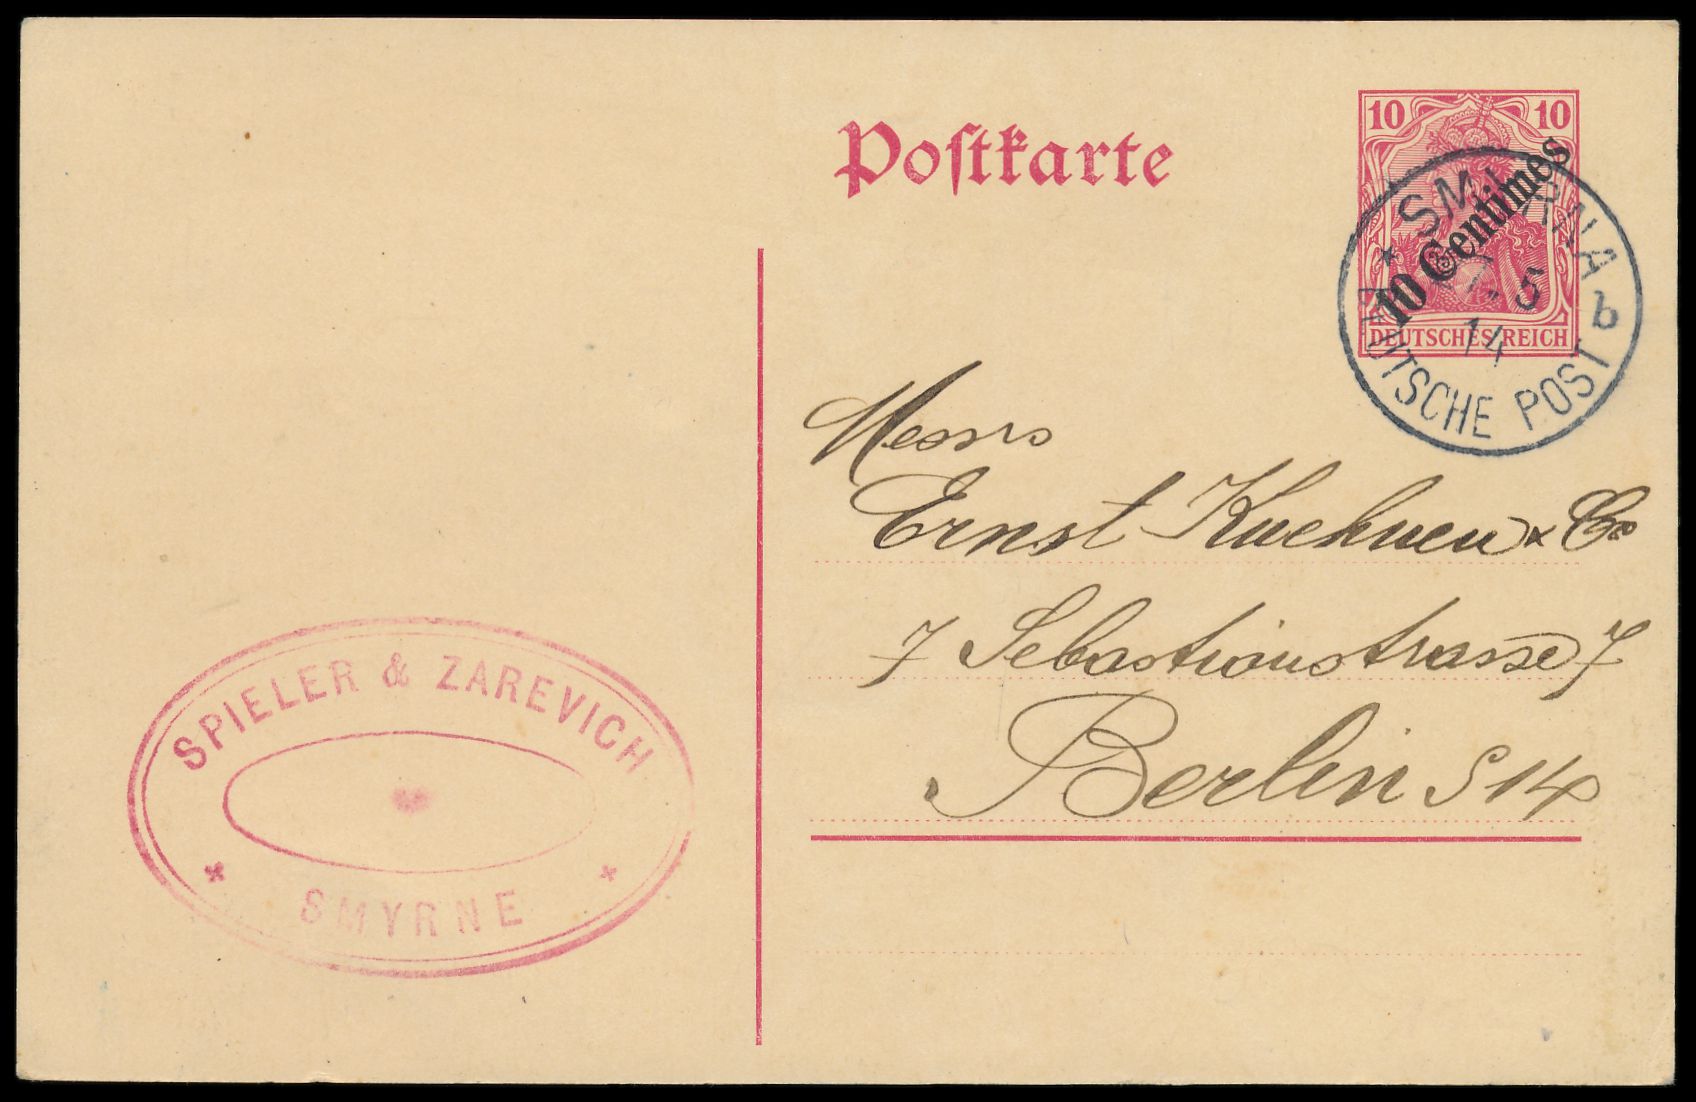 Postkarte
10 10
10 Centimes
DEUTSCHES REICH
SMIRNA
5
14
b
DEUTSCHE POST
Messrs
Ernst Kuehnen & Co
7 Sebastianstrasse 7
Berlin S 14
SPIELER & ZAREVICH
SMYRNE